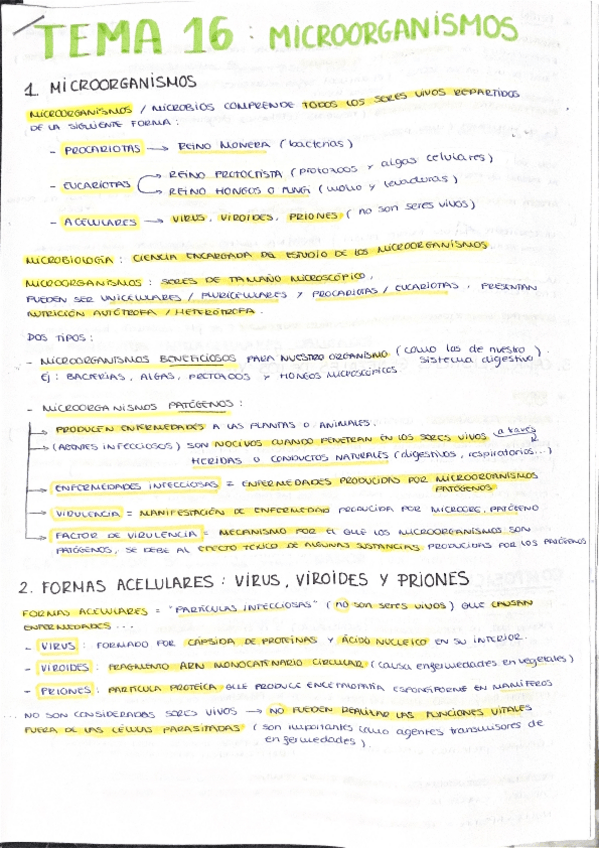 TEMA 16 : MICROORGANISMOS
1. MICROORGANISMOS
MICROORGANISMOS / MICROBIOS COMPRENDE TODOS LOS SERES VIVOS REPARTIDOS
DE LA SIGUIENTE FORMA :
- PROCARIOTAS → REINO MONERA ( bacterias )
- EUCARIOTAS → REINO PROTOCTISTA ( protozoos y algas celulares )
→ REINO HONGOS O FUNGI ( moho y levaduras )
- ACELULARES → VIRUS, VIROIDES, PRIONES ( no son seres vivos )
MICROBIOLOGÍA : CIENCIA ENCARGADA DEL ESTUDIO DE LOS MICROORGANISMOS
MICROORGANISMOS : SERES DE TAMAÑO MICROSCÓPICO,
PUEDEN SER UNICELULARES / PLURICELULARES Y PROCARIOTAS / EUCARIOTAS, PRESENTAN
NUTRICIÓN AUTÓTROFA / HETERÓTROFA.
DOS TIPOS :
- MICROORGANISMOS BENEFICIOSOS PARA NUESTRO ORGANISMO ( como los de nuestro
sistema digestivo ).
Ej : BACTERIAS, ALGAS, PROTOZOOS Y HONGOS MICROSCÓPICOS
- MICROORGANISMOS PATÓGENOS :
→ PRODUCEN ENFERMEDADES A LAS PLANTAS O ANIMALES.
→ (AGENTES INFECCIOSOS) SON NOCIVOS CUANDO PENETRAN EN LOS SERES VIVOS a través
HERIDAS O CONDUCTOS NATURALES (digestivos, respiratorios...)
→ ENFERMEDADES INFECCIOSAS = ENFERMEDADES PRODUCIDAS POR MICROORGANISMOS
PATÓGENOS
→ VIRULENCIA = MANIFESTACIÓN DE ENFERMEDAD PRODUCIDA POR MICROORG. PATÓGENO
→ FACTOR DE VIRULENCIA = MECANISMO POR EL QUE LOS MICROORGANISMOS SON
PATÓGENOS, SE DEBE AL EFECTO TÓXICO DE ALGUNAS SUSTANCIAS PRODUCIDAS POR LOS PATÓGENOS
2. FORMAS ACELULARES : VIRUS, VIROIDES Y PRIONES
FORMAS ACELULARES = "PARTÍCULAS INFECCIOSAS" ( no son seres vivos ) QUE CAUSAN
ENFERMEDADES ...
- VIRUS : FORMADO POR CÁPSIDA DE PROTEÍNAS Y ÁCIDO NUCLEICO EN SU INTERIOR.
- VIROIDES : FRAGMENTO ARN MONOCATENARIO CIRCULAR ( causa enfermedades en vegetales )
- PRIONES : PARTÍCULA PROTEICA QUE PRODUCE ENCEFALOPATÍA ESPONGIFORME EN MAMÍFEROS
NO SON CONSIDERADOS SERES VIVOS → NO PUEDEN REALIZAR LAS FUNCIONES VITALES
FUERA DE LAS CÉLULAS PARASITADAS ( son importantes como agentes transmisores de
enfermedades ).